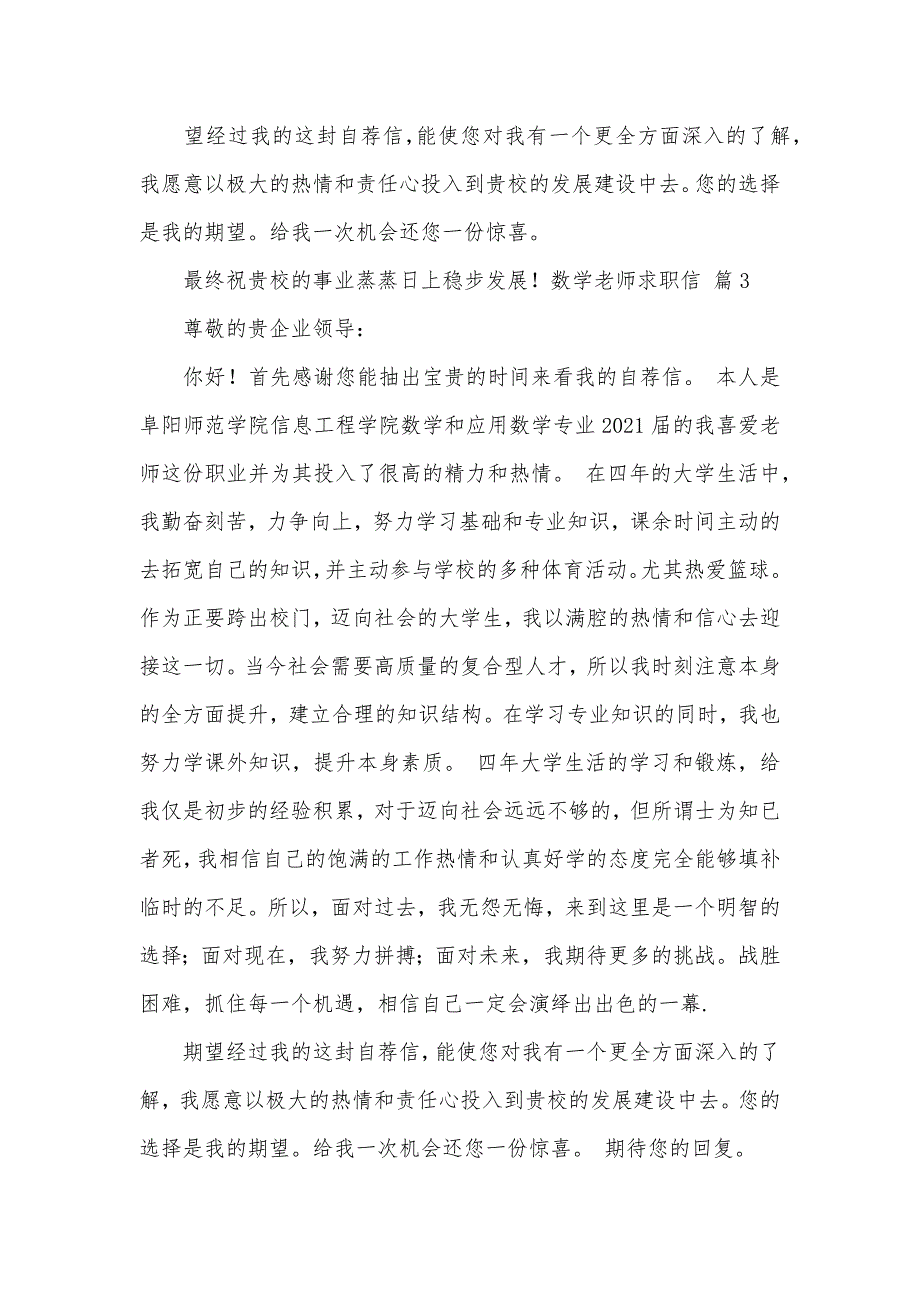 望经过我的这封自荐信，能使您对我有一个更全方面深入的了解，
我愿意以极大的热情和责任心投入到贵校的发展建设中去。您的选择
是我的期望。给我一次机会还您一份惊喜。
最终祝贵校的事业蒸蒸日上稳步发展！数学老师求职信 篇3
尊敬的贵企业领导：
你好！首先感谢您能抽出宝贵的时间来看我的自荐信。 本人是
阜阳师范学院信息工程学院数学和应用数学专业2021届的我喜爱老
师这份职业并为其投入了很高的精力和热情。 在四年的大学生活中，
我勤奋刻苦，力争向上，努力学习基础和专业知识，课余时间主动的
去拓宽自己的知识，并主动参与学校的多种体育活动。尤其热爱篮球。
作为正要跨出校门，迈向社会的大学生，我以满腔的热情和信心去迎
接这一切。当今社会需要高质量的复合型人才，所以我时刻注意本身
的全方面提升，建立合理的知识结构。在学习专业知识的同时，我也
努力学课外知识，提升本身素质。 四年大学生活的学习和锻炼，给
我仅是初步的经验积累，对于迈向社会远远不够的，但所谓士为知已
者死，我相信自己的饱满的工作热情和认真好学的态度完全能够填补
临时的不足。所以，面对过去，我无怨无悔，来到这里是一个明智的
选择；面对现在，我努力拼搏；面对未来，我期待更多的挑战。战胜
困难，抓住每一个机遇，相信自己一定会演绎出出色的一幕.
期望经过我的这封自荐信，能使您对我有一个更全方面深入的了
解，我愿意以极大的热情和责任心投入到贵校的发展建设中去。您的
选择是我的期望。给我一次机会还您一份惊喜。 期待您的回复。